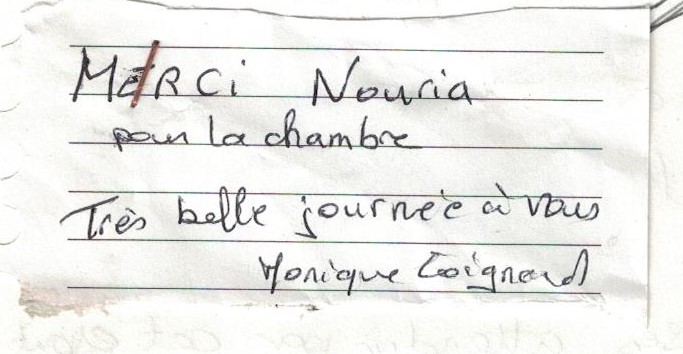 MERCi Nouria
pour la chambre
Très belle journée à vous
Monique Coignard